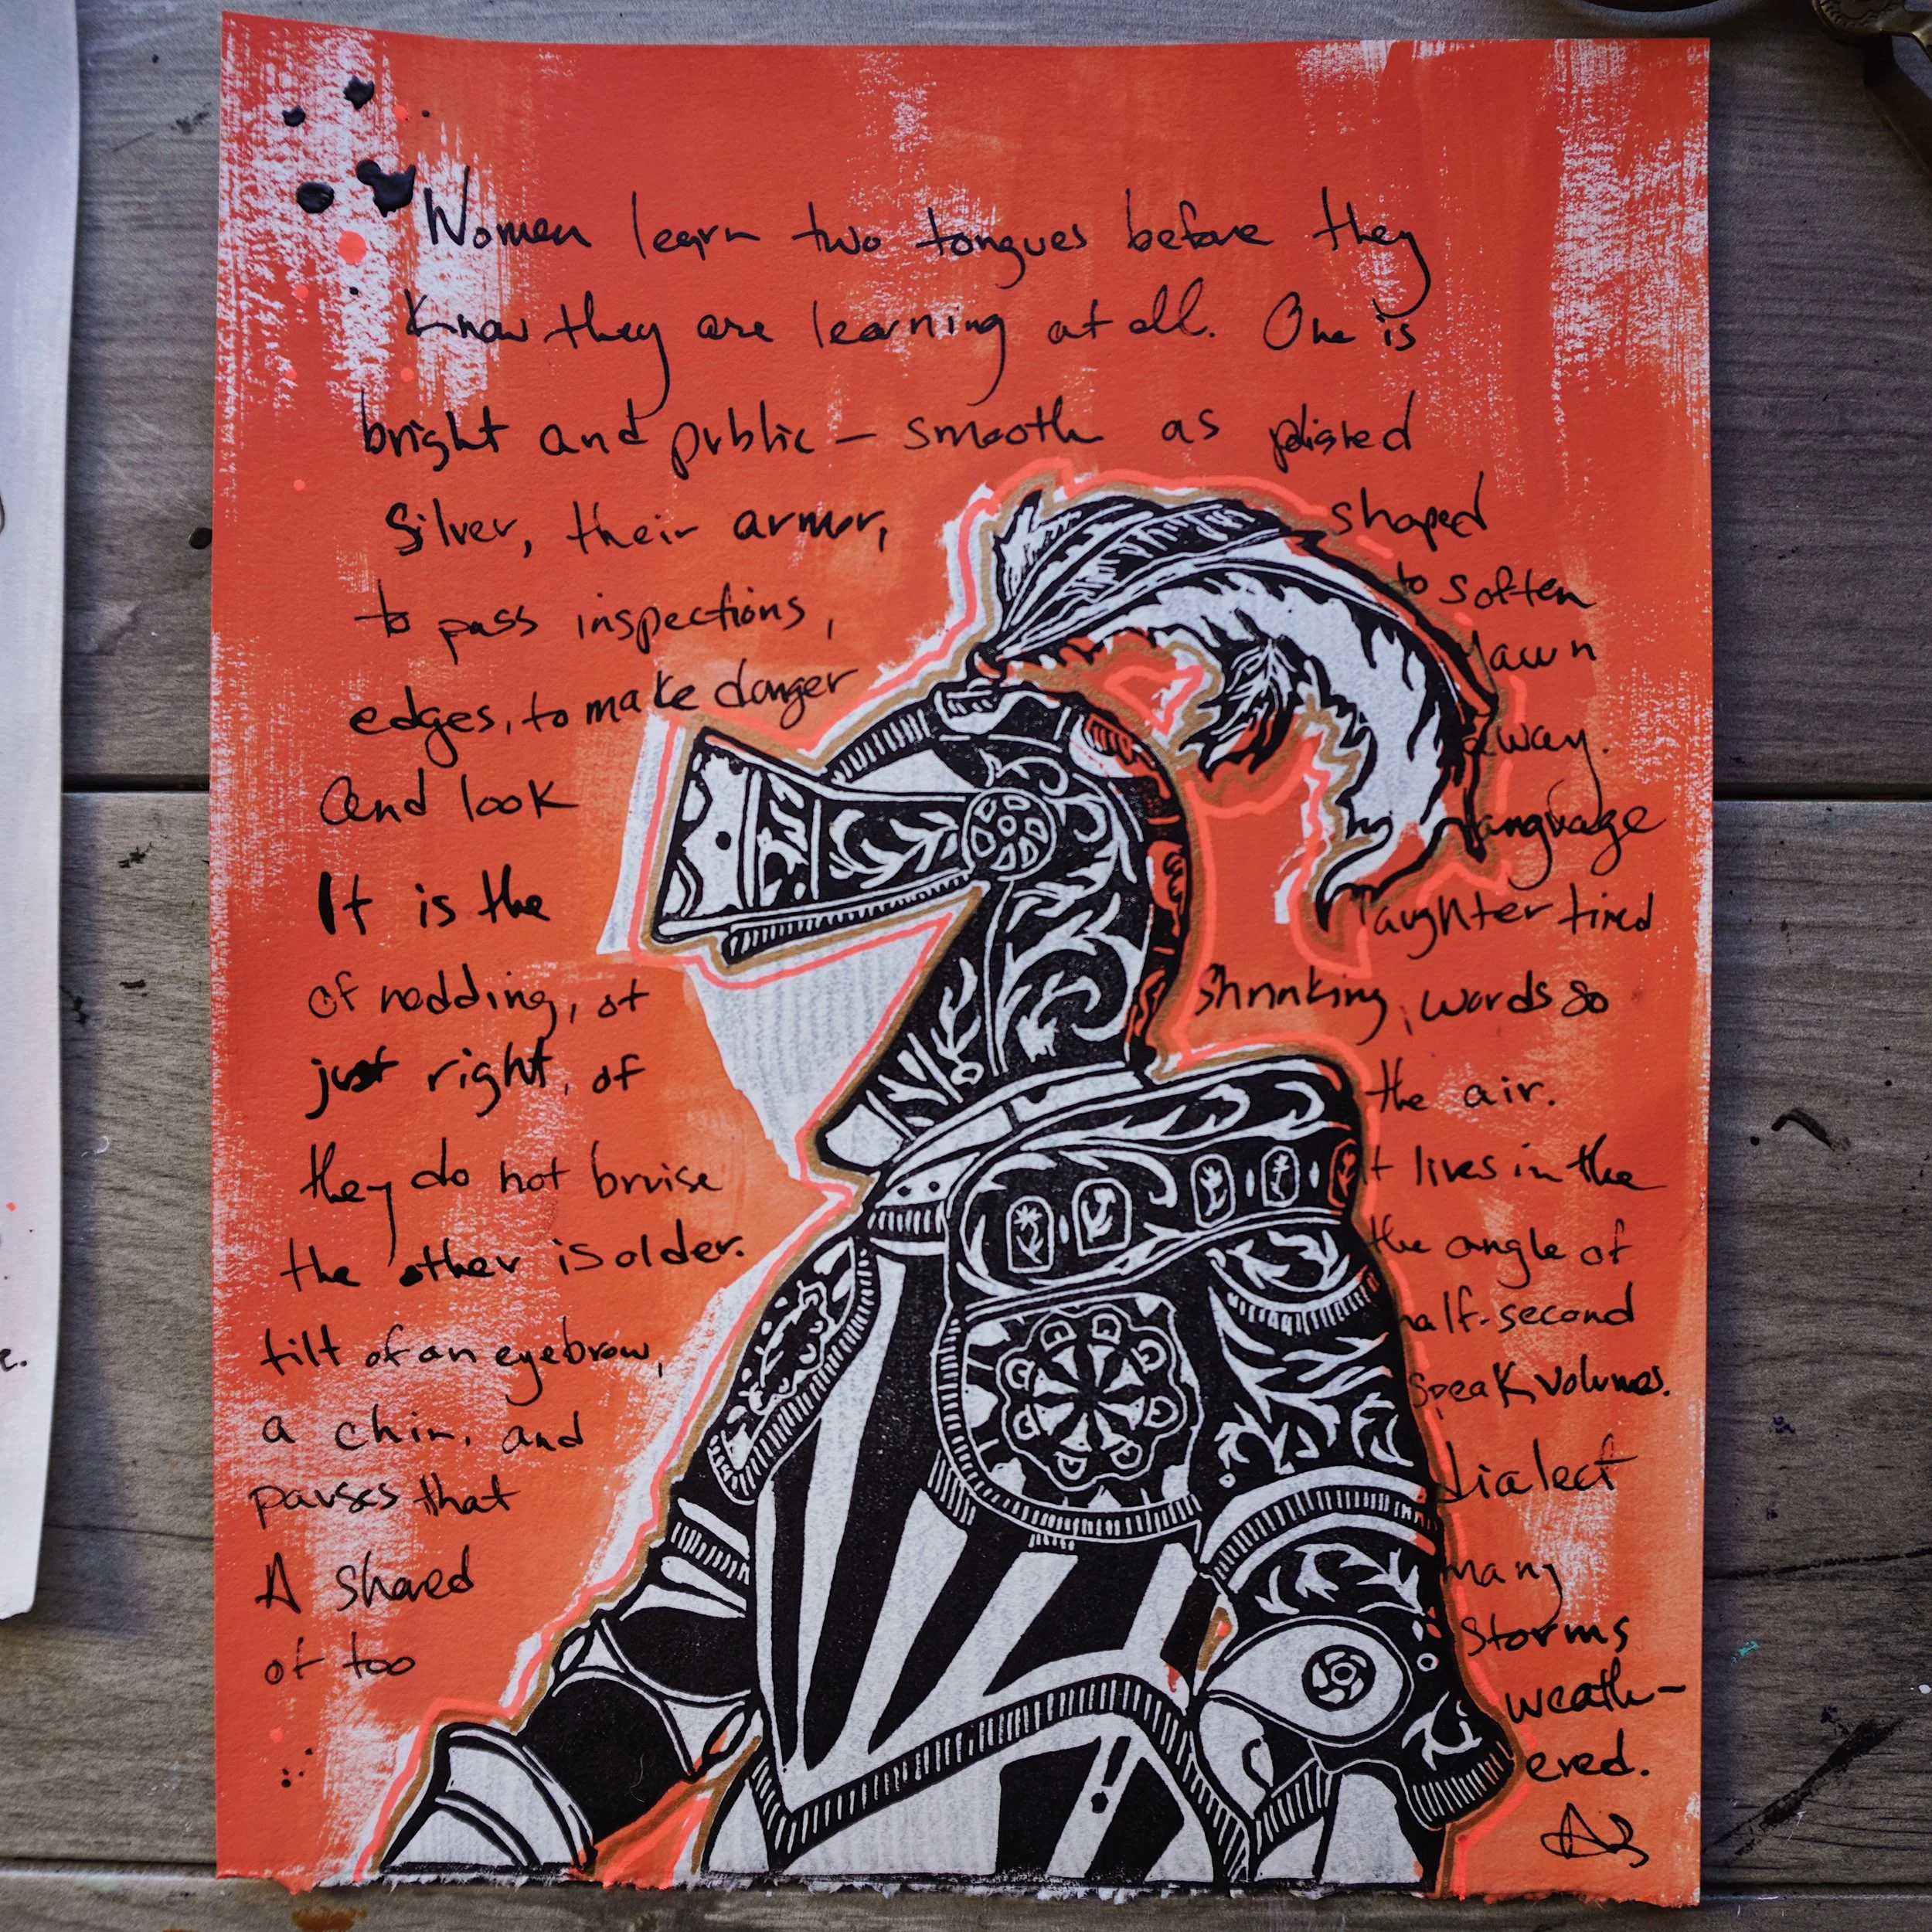 Women learn two tongues before they
know they are learning at all. One is
bright and public — smooth as polished
Silver, their armor, shaped
to pass inspections, to soften
edges, to make danger yawn
and look away.
It is the language
of nodding, of laughter timed
just right, of shrinking, words so
they do not bruise the air.
the other is older. It lives in the
tilt of an eyebrow, the angle of
a chin, and half-second
pauses that speak volumes.
A shared dialect
of too many
storms
weath-
ered.